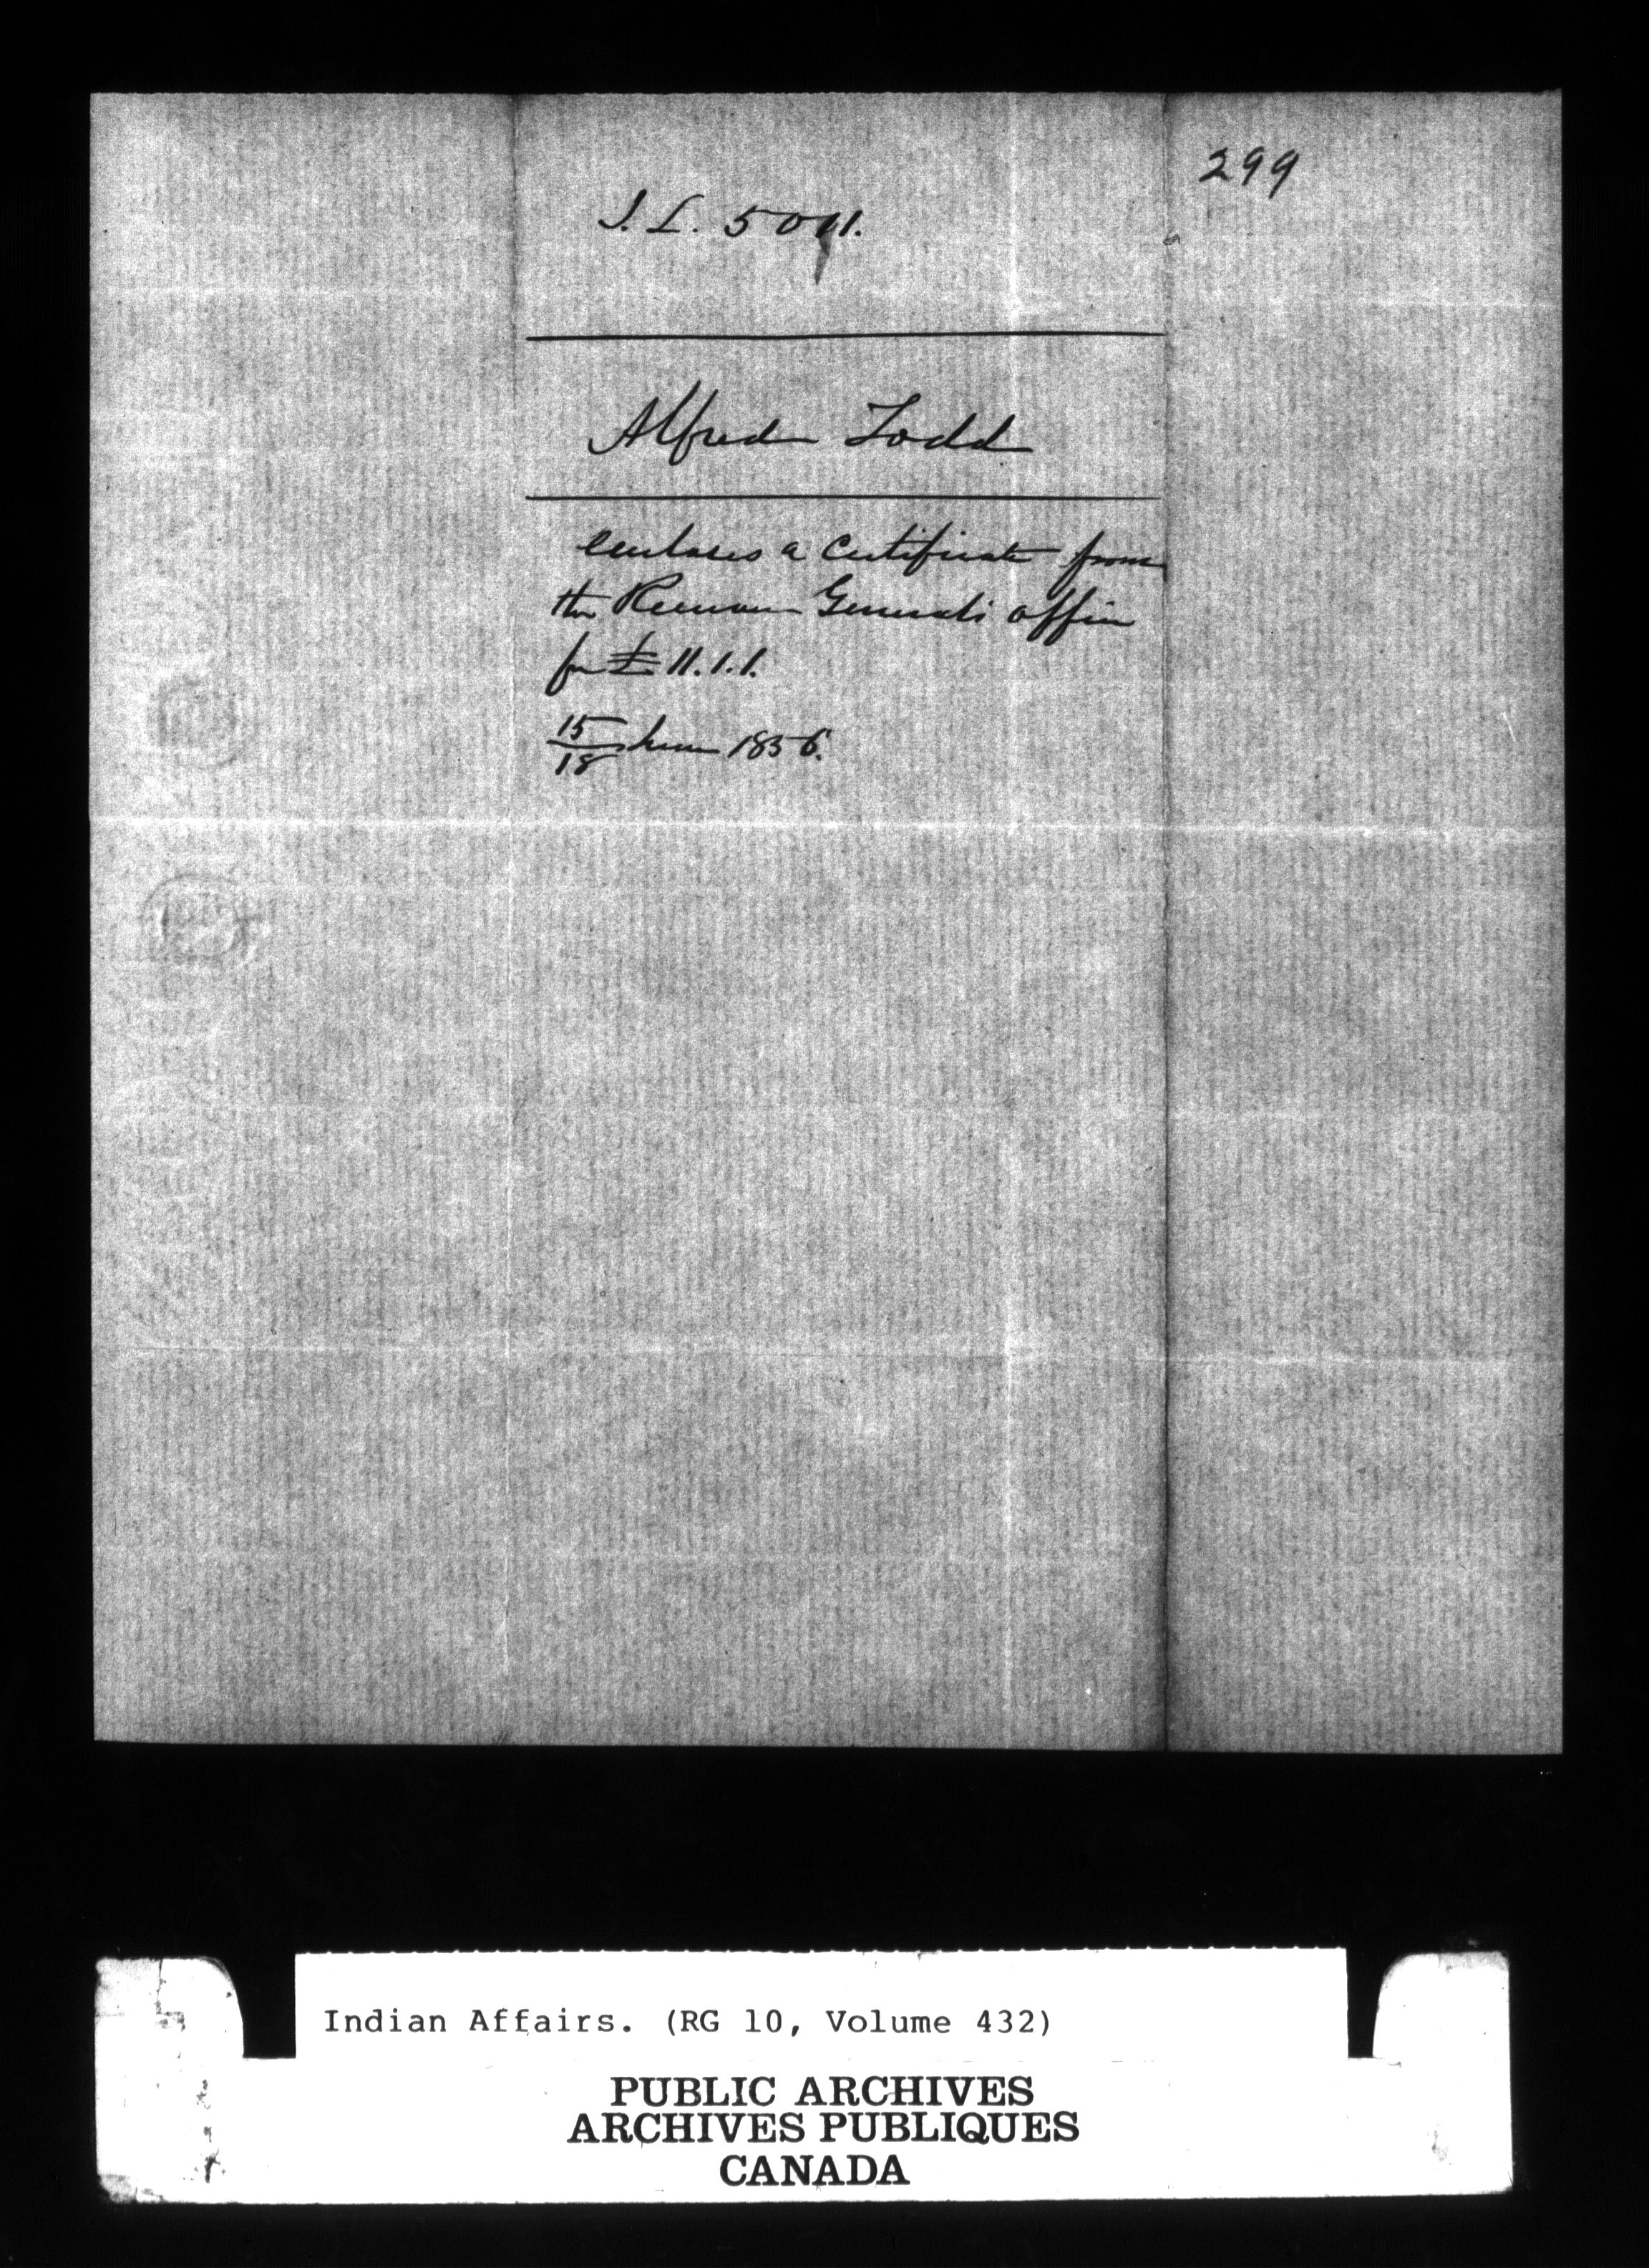 299
I. L. 5011.
Alfred Todd
encloses a Certificate from
the Receiver General's office
for £ 11.1.1.
15/18 June 1856.
Indian Affairs. (RG 10, Volume 432)
PUBLIC ARCHIVES
ARCHIVES PUBLIQUES
CANADA